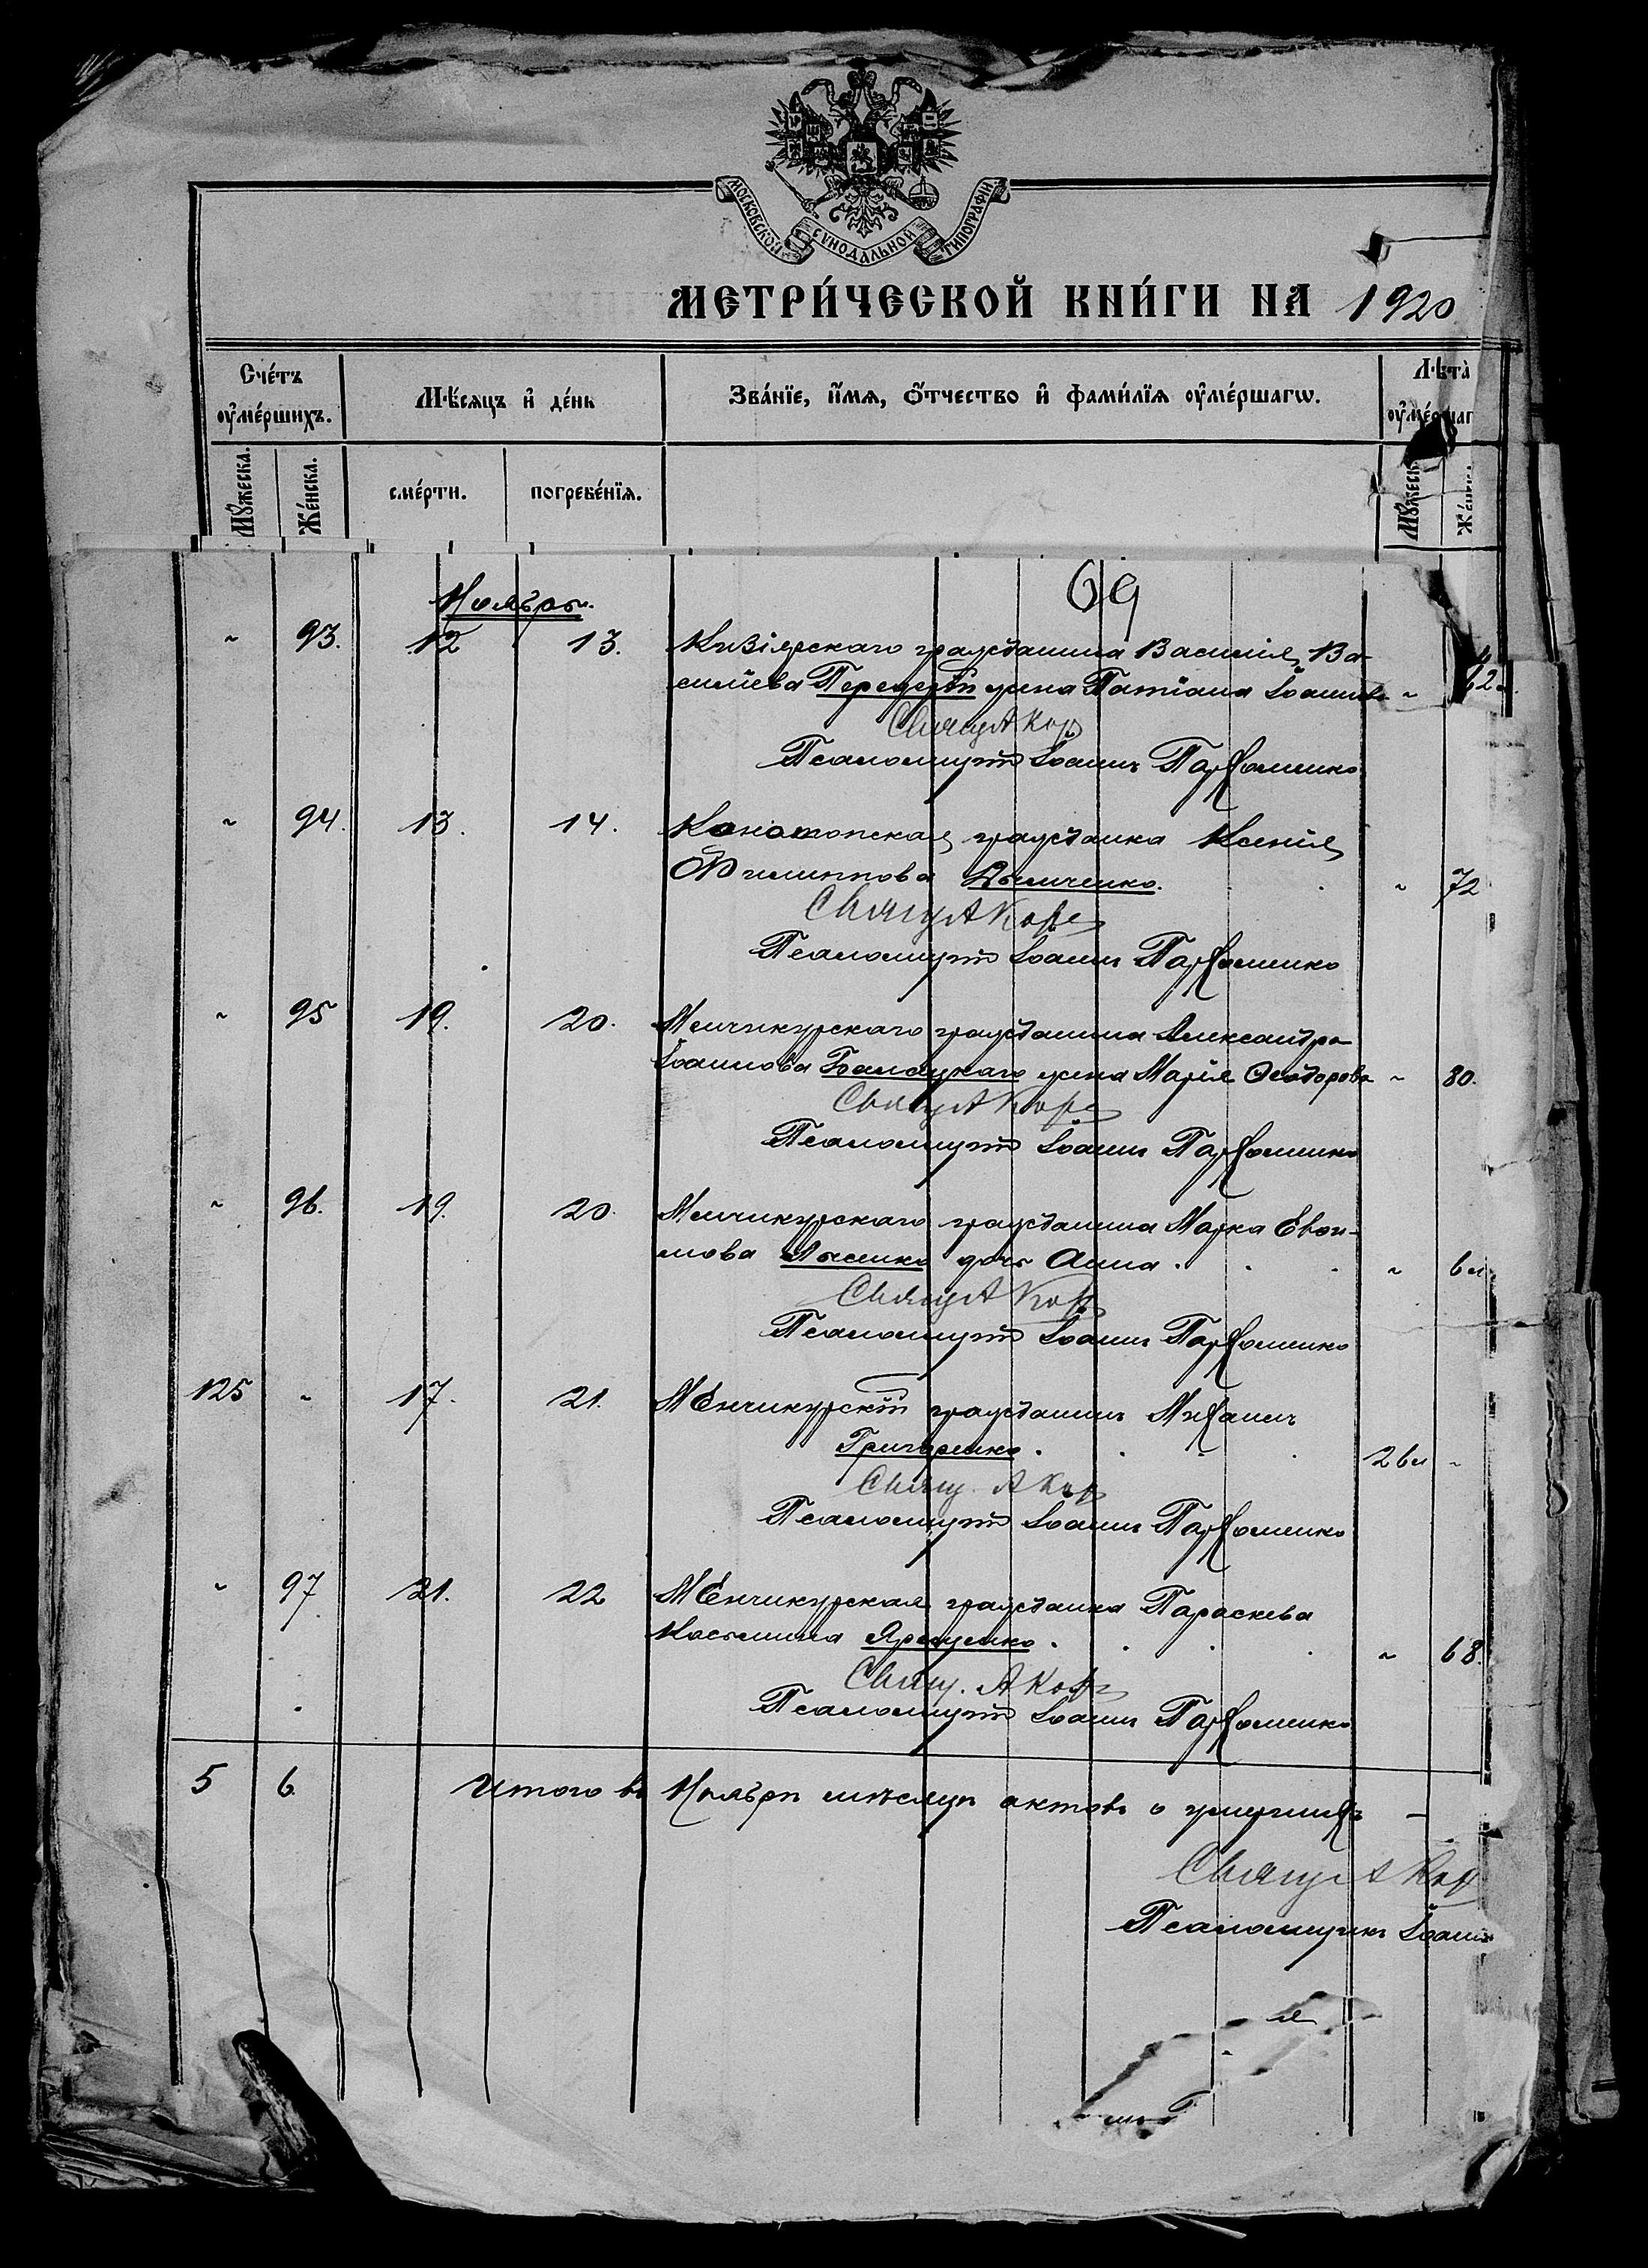 МОСКОВСКОЙ СѴНОДАЛЬНОЙ ТИПОГРАФІИ
МЕТРИ́ЧЕСКОЙ КНИ́ГИ НА 1920
Счéтъ ᲂу҆мéршихъ.
Мѣ́сяцъ и҆ дéнь
Звáнїе, и҆́мѧ, ѻ҆́тчество и҆ фамѝлїѧ ᲂу҆мéршагѡ.
Лѣтà
Мꙋ́жеска.
Жéнска.
смéрти.
погребéнїѧ.
Ноябрь.
69
" 93. 12 13. гражданина Василія Ва-
сильева жена Татіана Іоаннова " 62
Свящ А Кор
Псаломщикъ Іоаннъ Пархоменко
" 94. 13. 14. Конотопская гражданка Ксенія
Филиппова " 72
Свящ А Кор
Псаломщикъ Іоаннъ Пархоменко
" 95 19. 20. Менчикурскаго гражданина Александра
Іоаннова Балацкаго жена Марія Ѳеодорова " 80.
Свящ А Кор
Псаломщикъ Іоаннъ Пархоменко
" 96. 19. 20. Менчикурскаго гражданина Марка Евѳи-
мова Лысенко дочь Анна . . . " 6 м
Свящ А Кор
Псаломщикъ Іоаннъ Пархоменко
125 " 17. 21. Менчикурскій гражданинъ Михаилъ
Григоренко . . . 2 6м "
Свящ. А Кор
Псаломщикъ Іоаннъ Пархоменко
" 97. 21. 22 Менчикурская гражданка Параскева
Косьмина Яременко . . . " 68.
Свящ. А Кор
Псаломщикъ Іоаннъ Пархоменко
5 6. Итого въ Ноябрѣ мѣсяцѣ актовъ о умершихъ —
Свящ А Кор
Псаломщикъ Іоаннъ